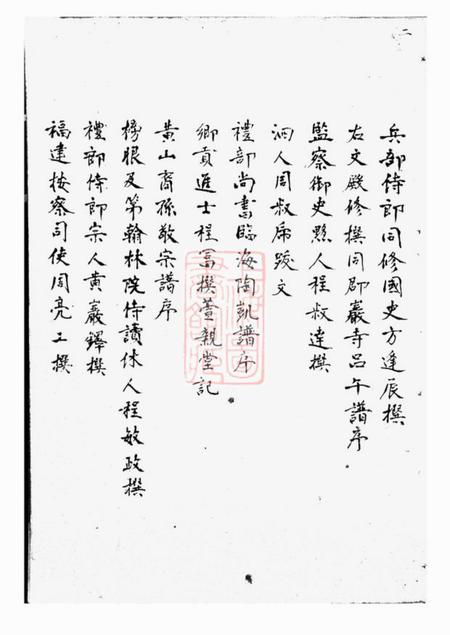 二
兵部侍郎同修國史方逢辰撰
右文殿修撰同郡巖寺呂午譜序
監察御史黟人程叔達撰
泗人周叔虎跋文
禮部尚書臨海陶凱譜序
鄉貢進士程富撰萱親堂記
黄山裔孫敬宗譜序
榜眼及第翰林院侍讀休人程敏政撰
禮部侍郎宗人黄巖鐸撰
福建按察司使周亮工撰